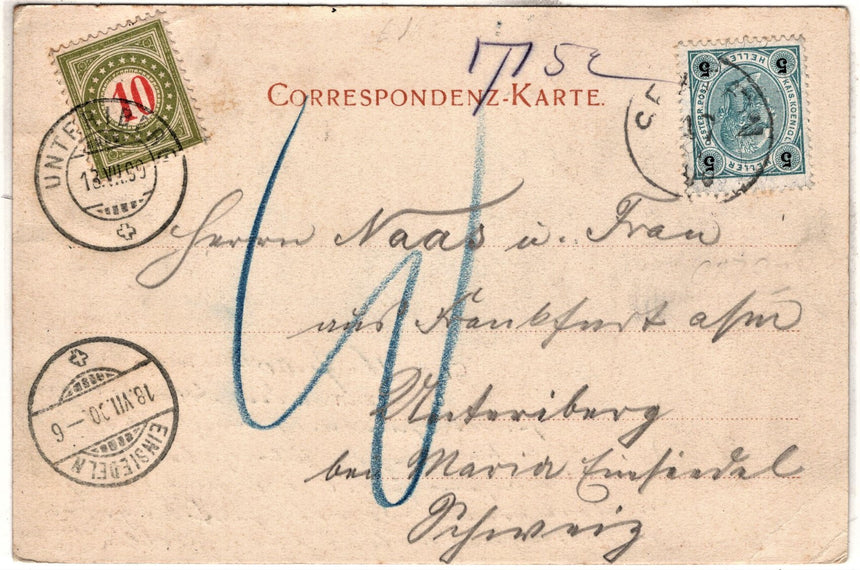 CORRESPONDENZ-KARTE.
10
18.VII.00
5
5
5
5
HELLER
HELLER
KAIS. KOENIGL.
OESTERR. POST
Herrn Naas u. Frau
aus Frankfurt a/M
Unteriberg
bei Maria Einsiedel
Schweiz
18.VII.00.-6
EINSIEDELN